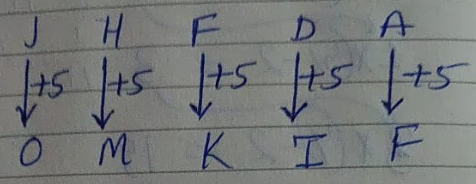 J H F D A
+5 +5 +5 +5 +5
O M K I F